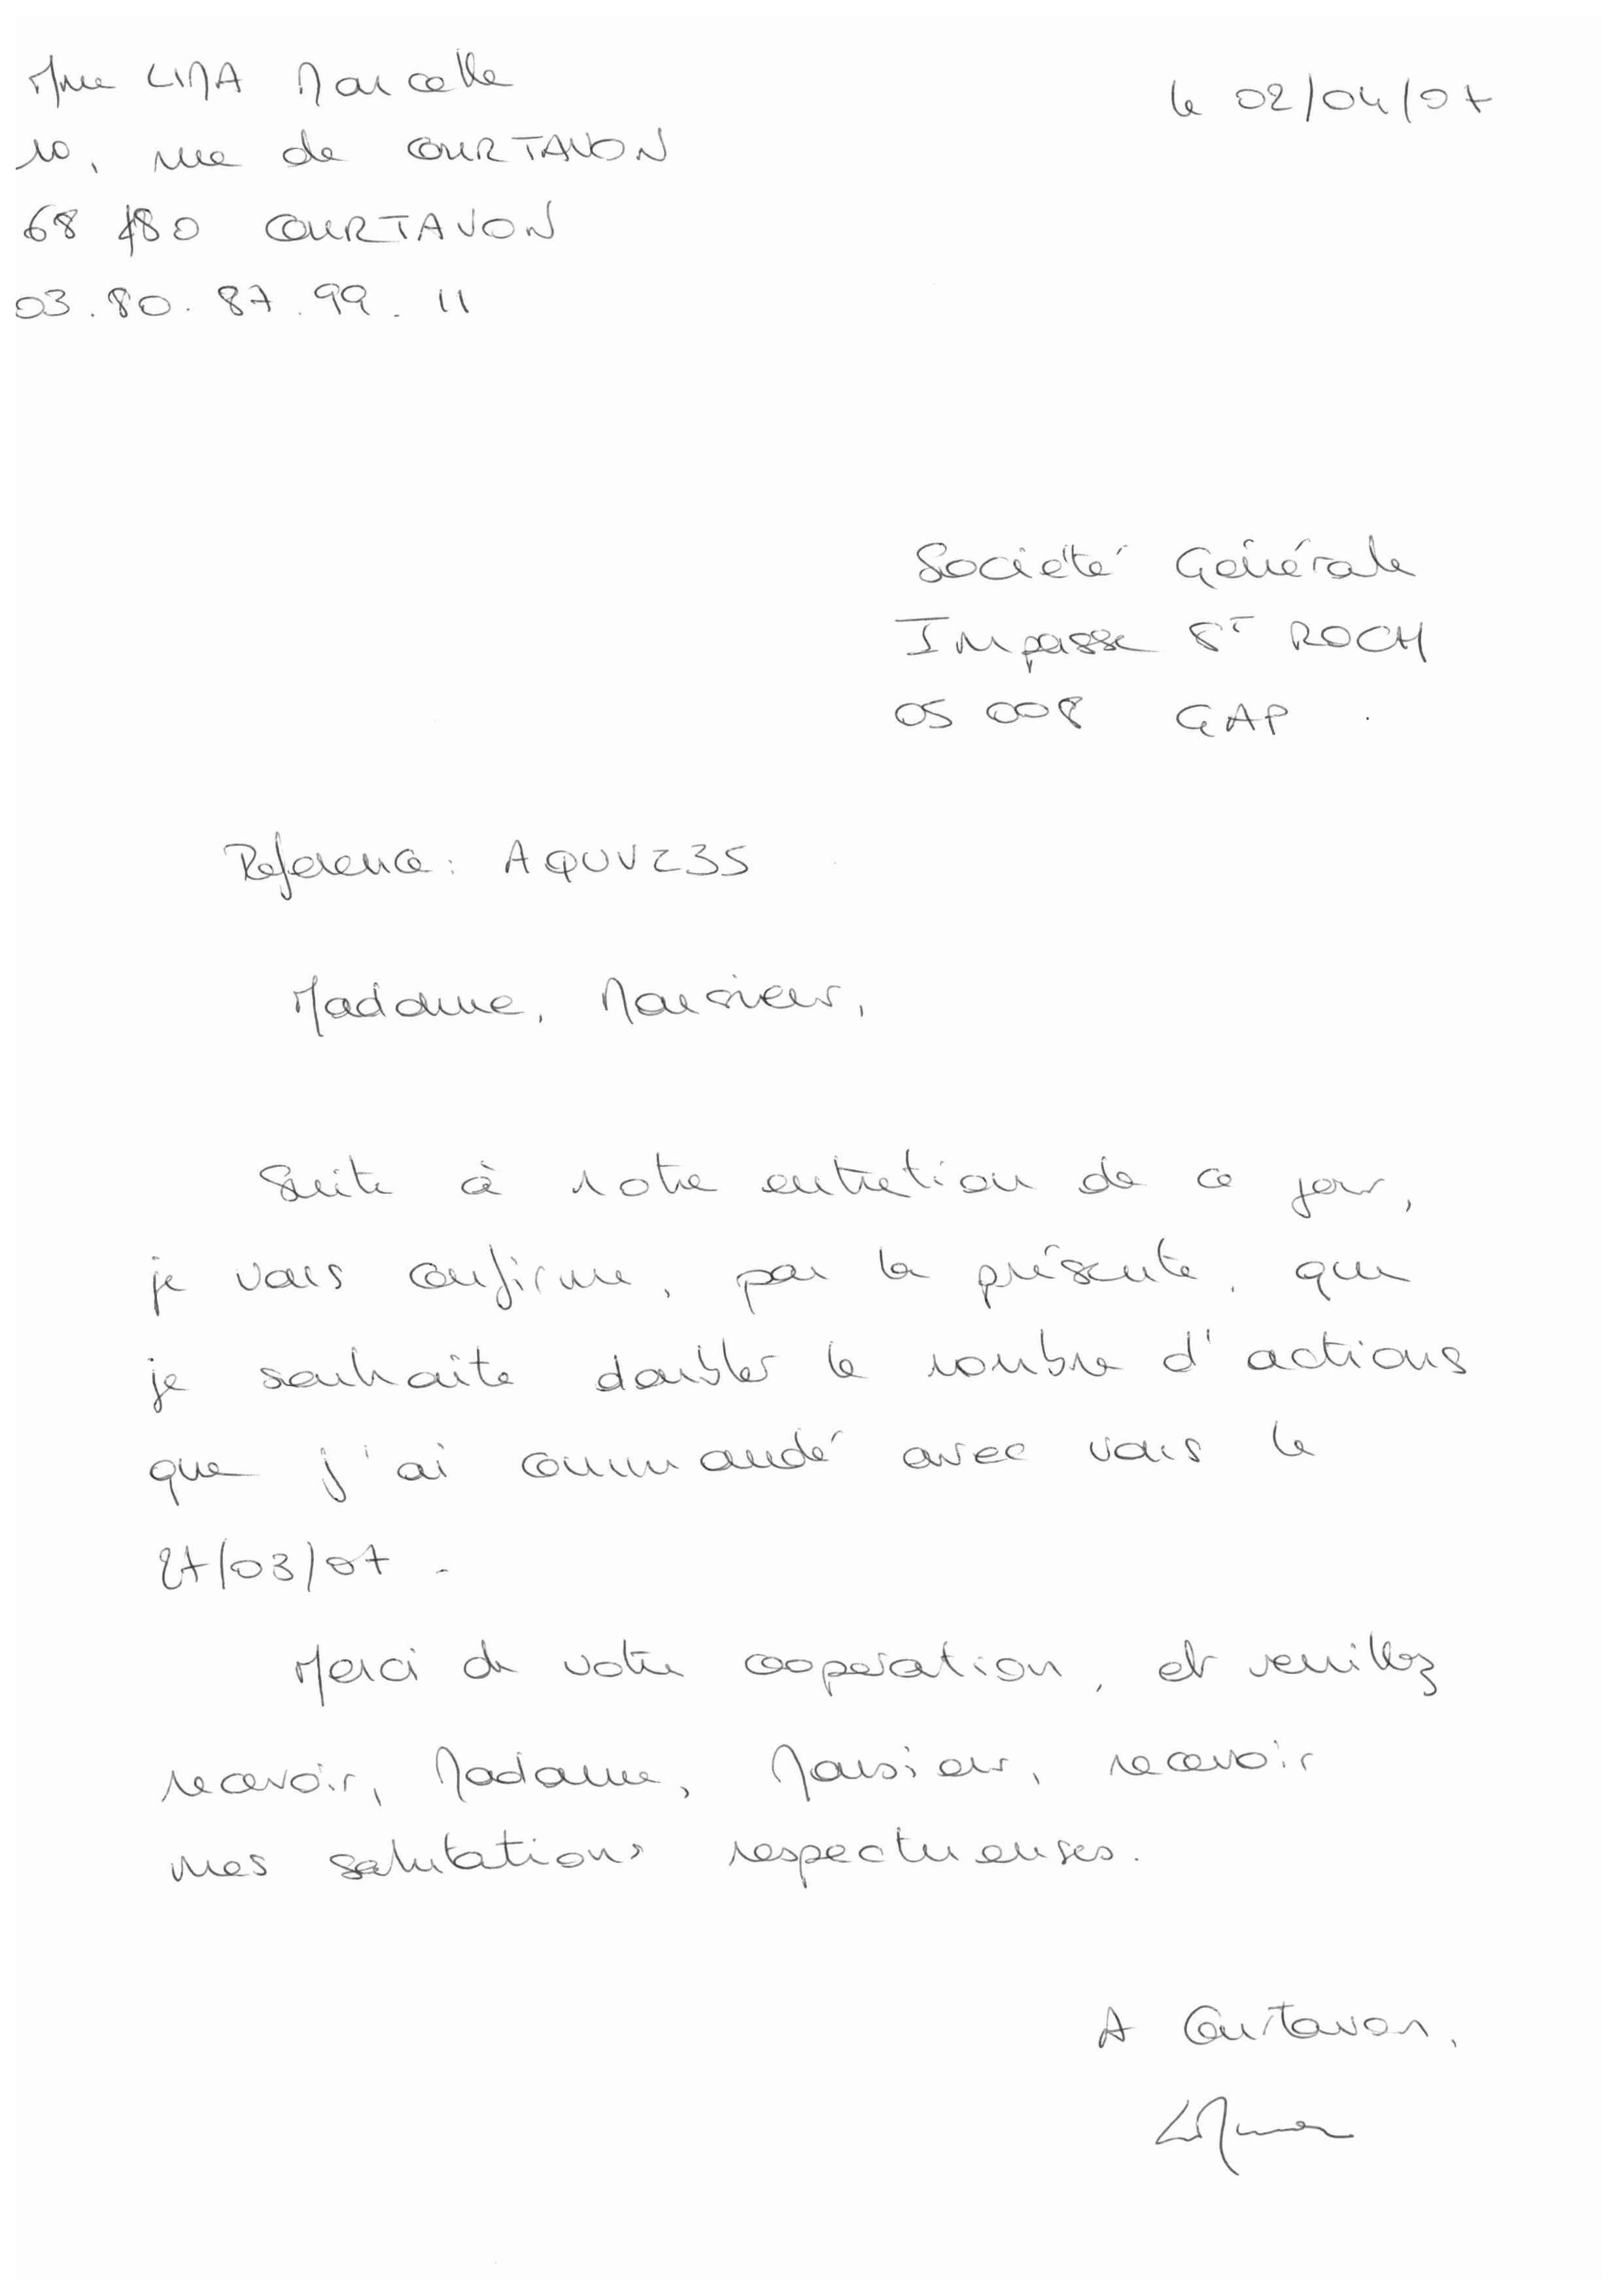 Mme LIMA Marcelle
le 02/04/07
10, rue de COURTAVON
68 480 COURTAVON
03.80.87.99.11
Société Générale
Impasse St ROCH
05 008 GAP
Reference: AQUVZ35
Madame, Monsieur,
Suite à notre entretion de ce jour,
je vous confirme, par la présente, que
je souhaite doubler le nombre d'actions
que j'ai commandé avec vous le
27/03/07.
Merci de votre cooperation, et veuillez
recevoir, Madame, Monsieur, recevoir
mes salutations respectueuses.
A Courtavon,